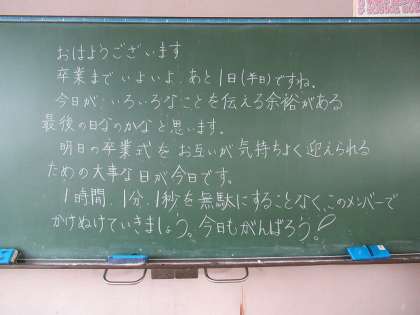 おはようございます
卒業まで いよいよ あと1日(半日)ですね.
今日が いろいろなことを伝える余裕がある
最後の日なのかなと思います.
明日の卒業式を お互いが 気持ちよく 迎えられる
ための大事な日が今日です。
1時間、1分、1秒を無駄にすることなく、このメンバーで
かけぬけていきましょう。今日もがんばろう!